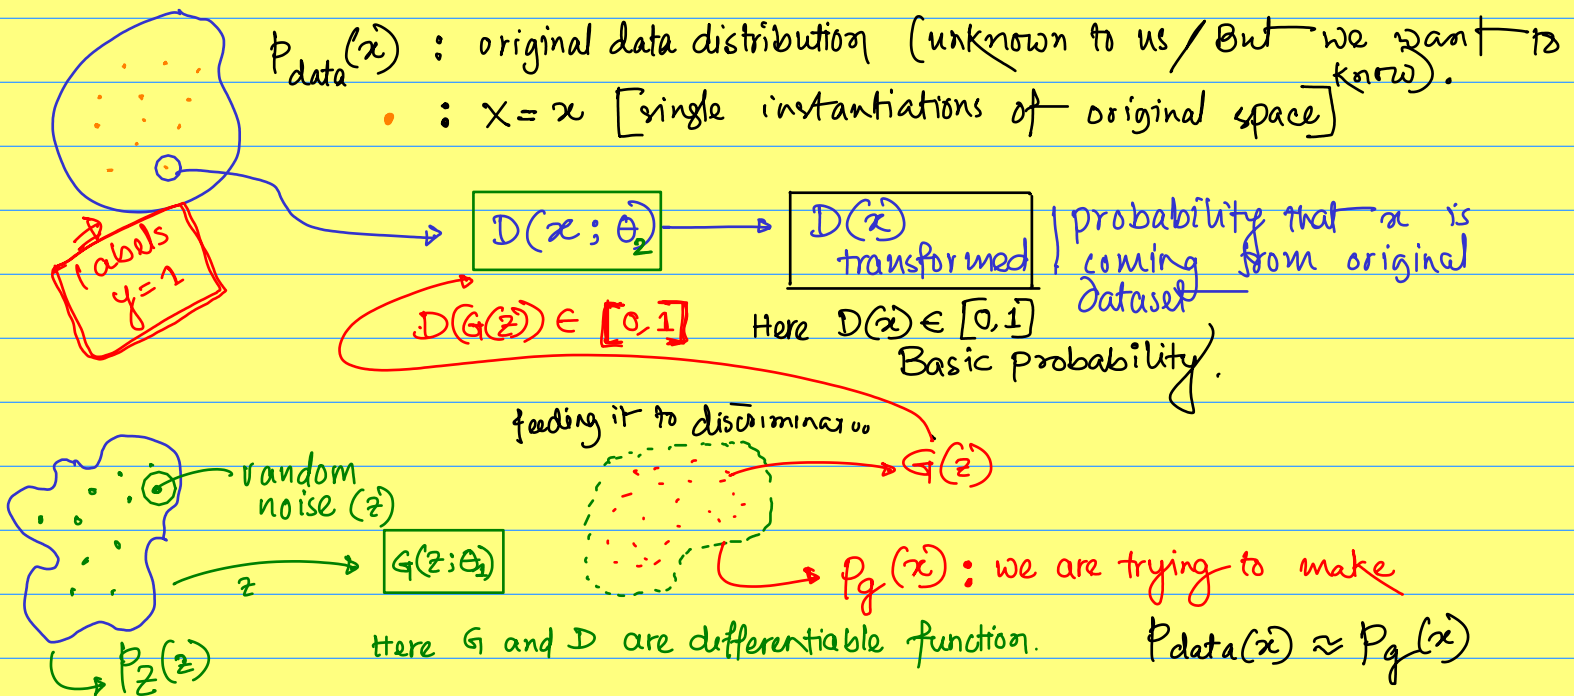 P_data(x) : original data distribution (unknown to us / But we want to know).
: X = x [single instantiations of original space]
Labels
y=1
D(x; θ_2)
D(x)
transformed
probability that x is
coming from original
dataset
D(G(z)) ∈ [0,1]
Here D(x) ∈ [0,1]
Basic probability.
feeding it to
random
noise (z)
G(z)
z
G(z;θ_1)
P_g(x) : we are trying to make
P_data(x) ≈ P_g(x)
Here G and D are differentiable function.
P_Z(z)